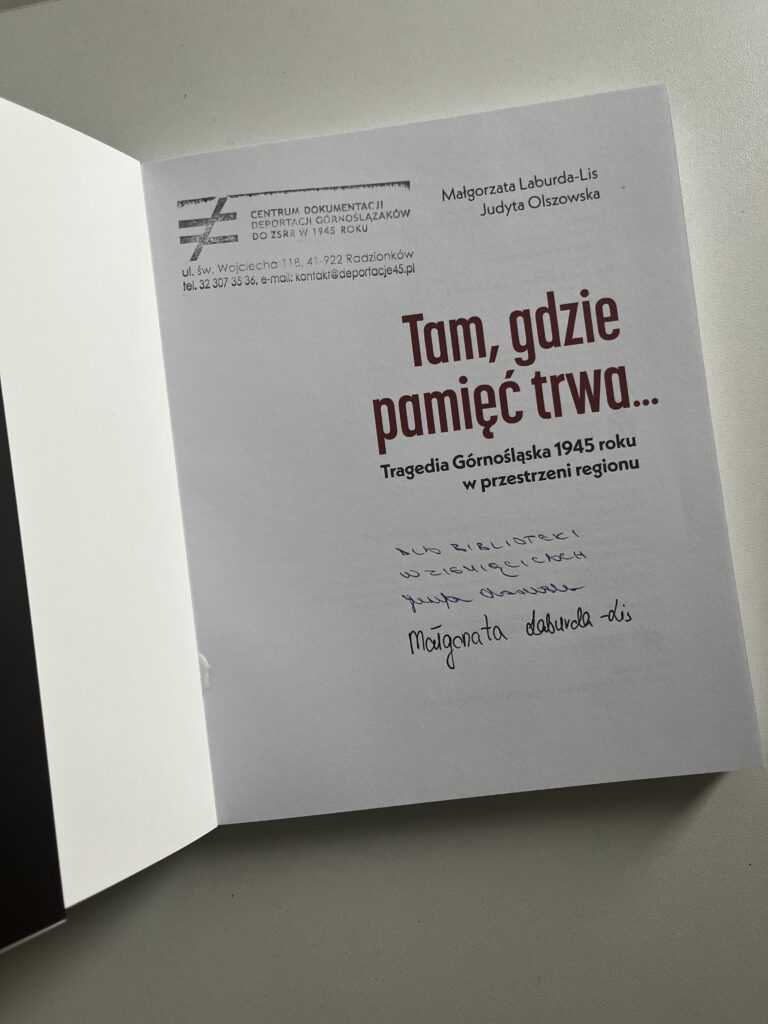 CENTRUM DOKUMENTACJI
DEPORTACJI GÓRNOŚLĄZAKÓW
DO ZSRR W 1945 ROKU
ul. św. Wojciecha 118, 41-922 Radzionków
tel. 32 307 35 36, e-mail: kontakt@deportacje45.pl
Małgorzata Laburda-Lis
Judyta Olszowska
Tam, gdzie
pamięć trwa...
Tragedia Górnośląska 1945 roku
w przestrzeni regionu
DLA BIBLIOTEKI
W ZIEMIĘCICACH
Małgorzata Laburda-Lis